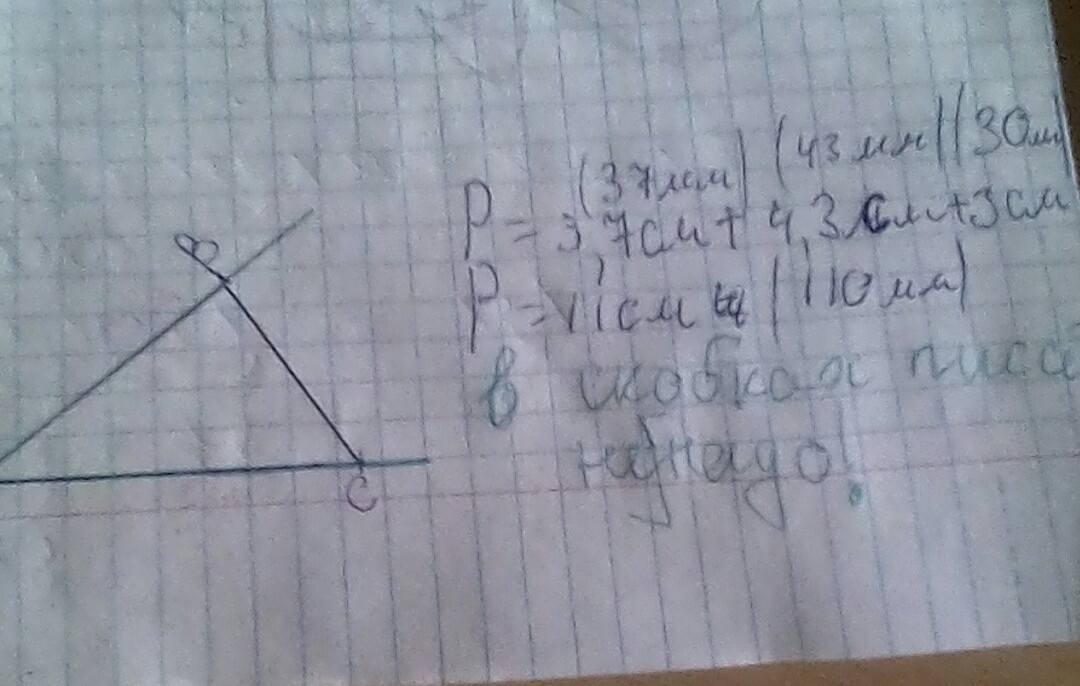 (37мм) (43мм) (30мм)
P = 3,7см + 4,3см + 3см
P = 11см (110мм)
В
в скобках писа
не надо!
С